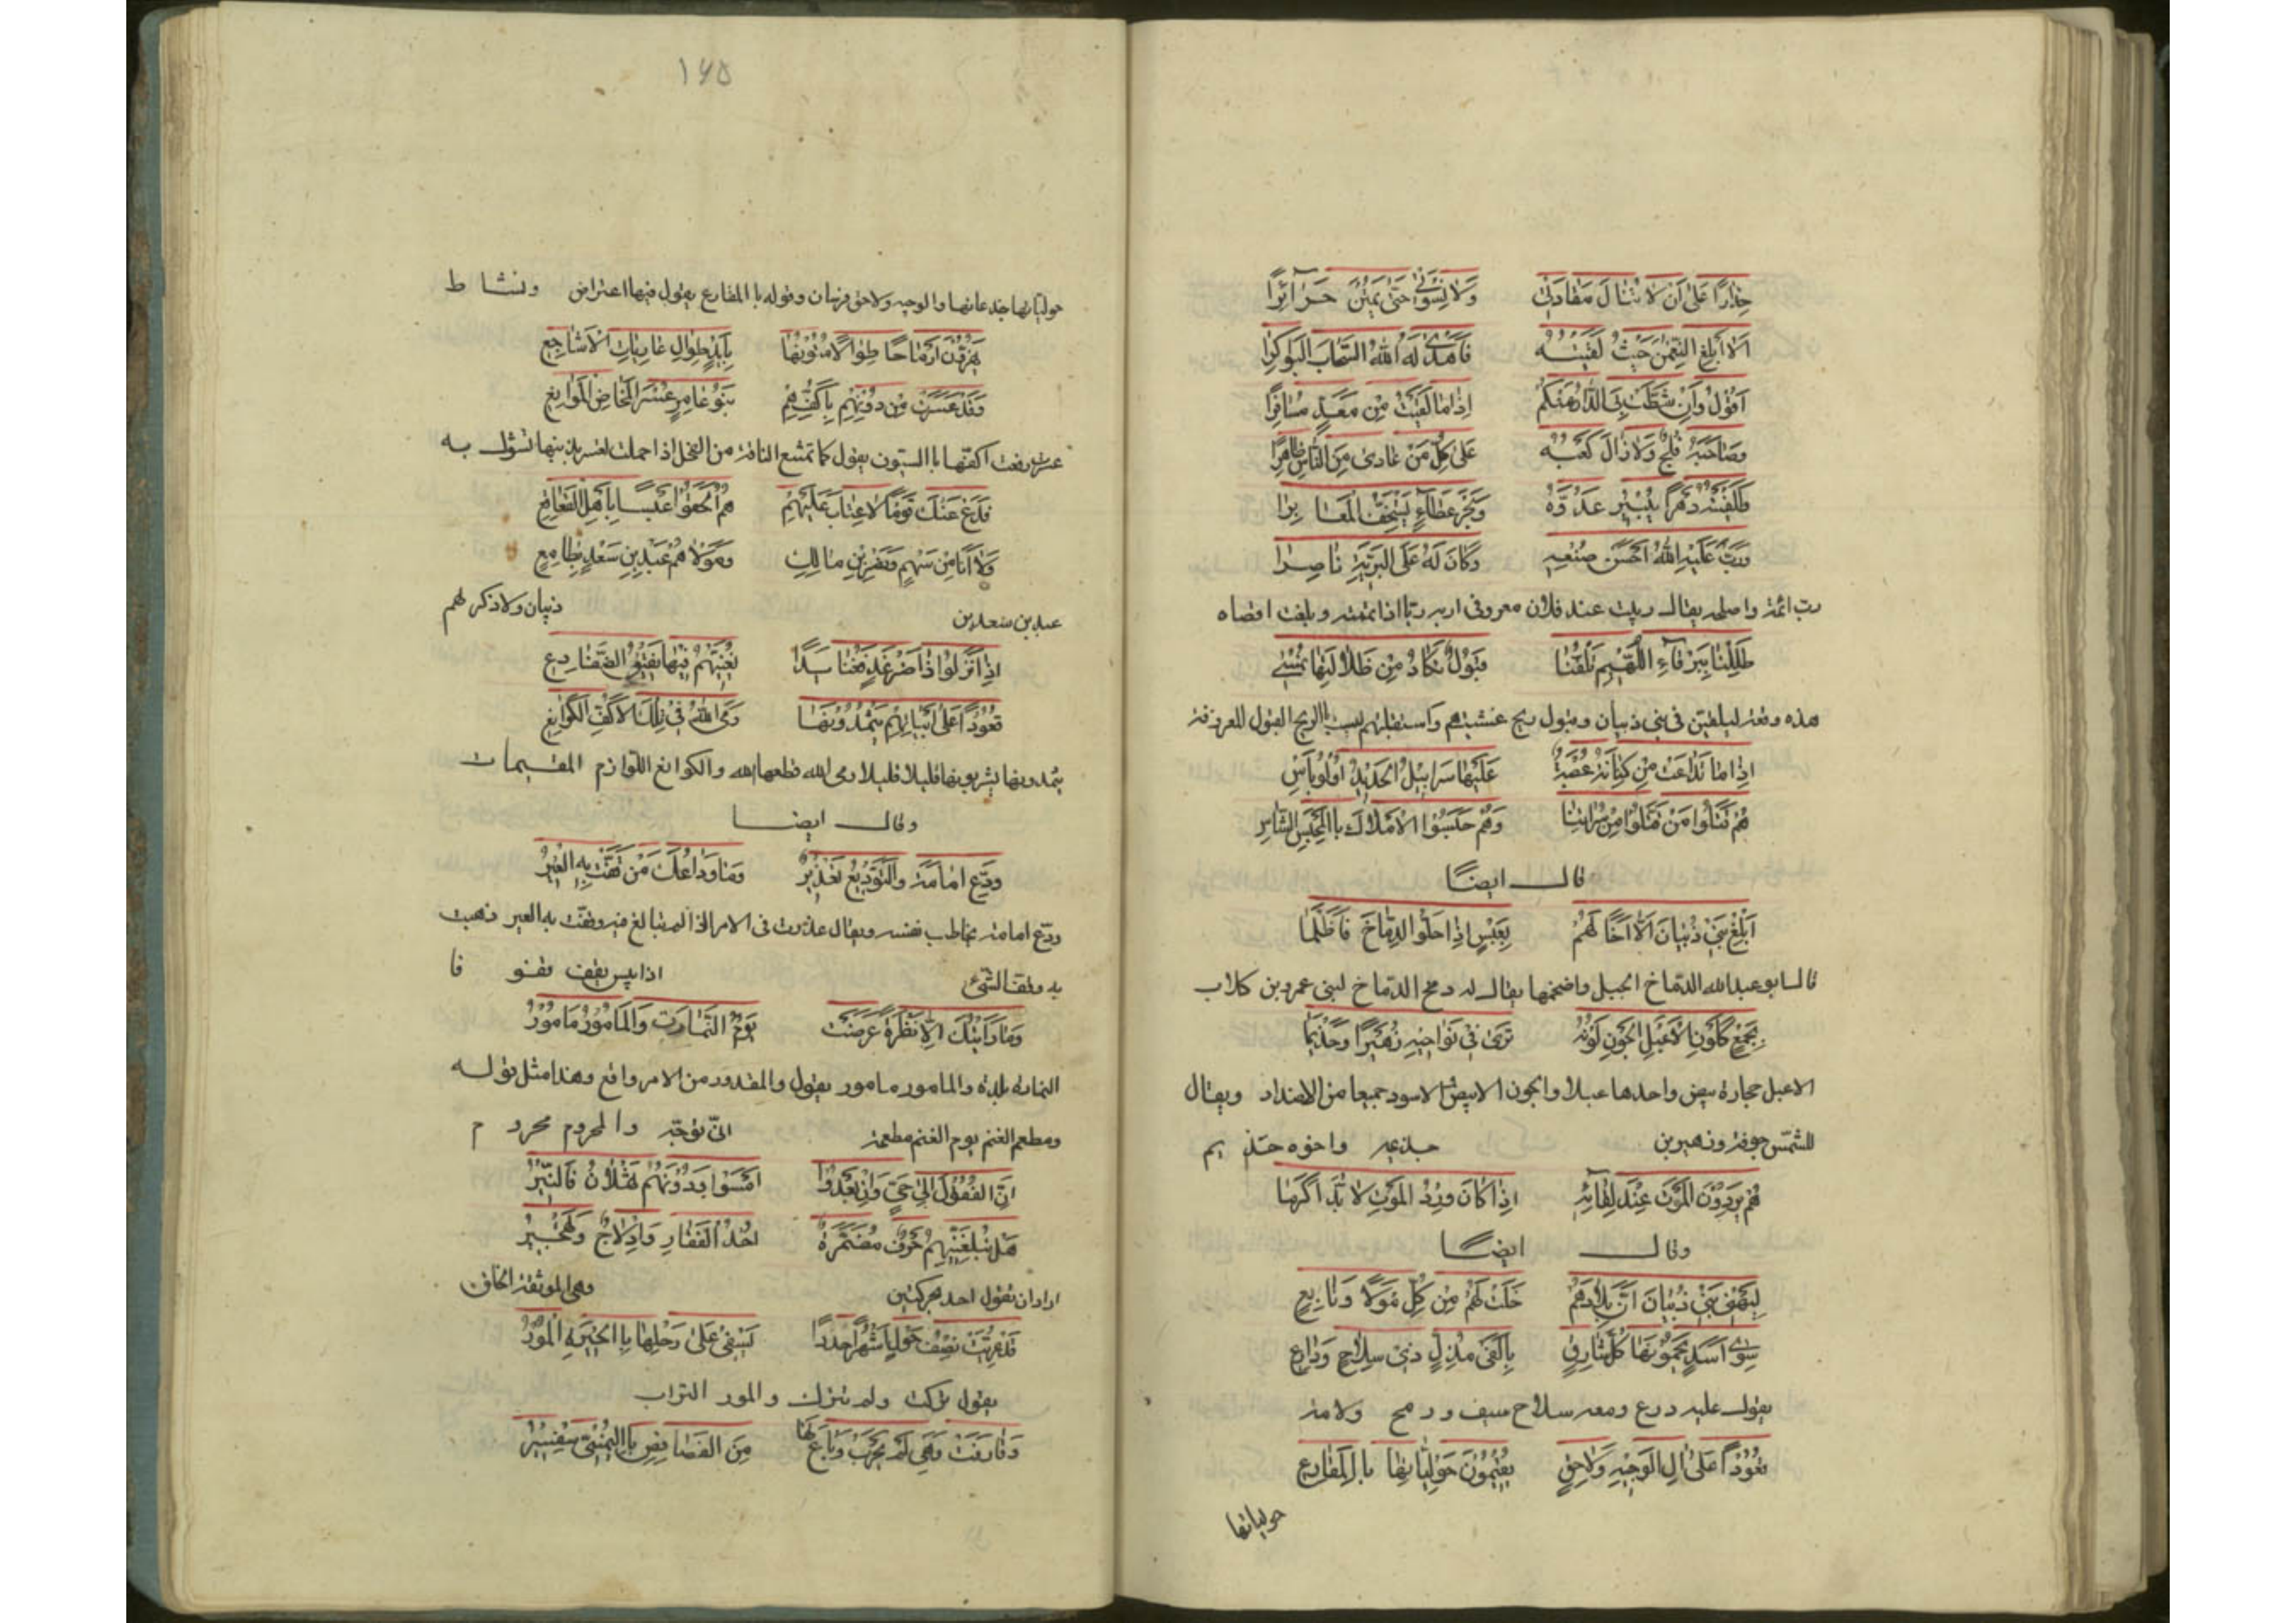 حِذَارًا عَلَى اَنْ لَا تُنَالَ مَقَادَتِي وَلَا نِسْوَتِي حَتَّى يَمُتْنَ حَرَآئِرًا
اَلَا اَبْلِغِ النُّعْمٰنَ حَيْثُ لَقِيْتَهُ فَاَهْدَى لَهُ اللّٰهُ السَّحَابَ البَوَاكِرَا
اَقُوْلُ وَاِنْ شَطَّتْ بِيَ الدَّارُ عَنْكُمْ اِذَا مَا لَقِيْتَ مِنْ مَعَدٍّ مُسَافِرًا
وَصَاحَبَهُ فَلْجٌ وَلَا زَالَ كَعْبُهُ عَلَى كُلِّ مَنْ عَادَى مِنَ النَّاسِ ظَاهِرًا
وَبَحْرُ عَطَاءٍ يَسْتَخِفُّ المَعَا بِرَا
وَرَبَّ عَلَيْهِ اللّٰهُ اَحْسَنَ صُنْعِهِ وَكَانَ لَهُ عَلَى البَرِيَّةِ نَاصِرَا
رب اتمه واصلحه يقال ربيت عند فلان معروفى اربه ربا اذا تممته وبلغت اقصاه
ظَلِلْنَا بِبَرْقَآءِ اللُّهَيْمِ تَلُفُّنَا قَبُوْلٌ تَكَادُ مِنْ ظَلَالَتِهَا تُمْسِي
هذه وقعة فى بنى ذبيان وقبول ريح
اِذَا مَا تَدَاعَتْ مِنْ كِنَانَةَ عُصْبَةٌ عَلَيْهَا سَرَابِيْلُ الحَدِيْدِ اُوْلُو بَأْسِ
هُمْ قَتَلُوا مَنْ قَتَلُوا مِنْ سَرَاتِنَا وَهُمْ حَبَسُوْا الاَمْلَاكَ بِاالمَحْبَسِ الشَّاسِ
قال ايضًا
اَبْلِغْ بَنِي ذُبْيَانَ اَلَّا اَخَا لَهُمْ بِعَبْسٍ اِذَا حَلُّوا الدِّمَاخَ فَاَظْلَمَا
قال ابو عبدالله الدماخ الجبل واضخمها يقال له دمخ الدماخ لبنى عمرو بن كلاب
بِجَمْعٍ كَلَوْنِ الاَعْبَلِ الجَوْنِ لَوْنُهُ تَرَى فِي نَوَاحِيْهِ زُهَيْرًا وَحِذْيَمَا
الاعبل حجارة بيض واحدها عبلا والجون الابيض الاسود جميعا من الاضداد ويقال
للشمس جونة وزهير بن جذيمه واخوه حذيم
هُمْ يَرِدُوْنَ المَوْتَ عِنْدَ لِقَائِهِ اِذَا كَانَ وِرْدُ المَوْتِ لَا بُدَّ اَكْرَمَا
وقال ايضًا
لِيَهْنِي بَنِي ذُبْيَانَ اَنَّ بِلَادَهُمْ خَلَتْ لَهُمْ مِنْ كُلِّ مَوْلًا وَتَابِعِ
سِوَى اَسَدٍ يَحْمُوْنَهَا كُلَّ شَارِقٍ بِاَلْفَيْ مُذِلٍّ ذِي سِلَاحٍ وَدَارِعِ
يقول عليه درع ومعه سلاح سيف ورمح ولامة
قُعُوْدًا عَلَى اٰلِ الوَجِيْهِ وَلَاحِقٍ يُقِيْمُوْنَ حَوْلِيَّاتِهَا بِالمَقَارِعِ
حولياتها
١٧٥
حولياتها جذعانها والوجيه ولاحق فرسان وقوله باالمقارع يقول فيها اعتراض ونشاط
يَهُزُّوْنَ اَرْمَاحًا طِوَالًا مُتُوْنُهَا بِاَيْدٍ طِوَالٍ عَارِيَاتِ الاَشَاجِعِ
بَنُوْ عَامِرٍ عَسْرَ المَخَاضِ المَوَانِعِ
فَدَعْ عَنْكَ قَوْمًا لَا عِتَابَ عَلَيْهِمُ هُمُ اَلْحَقُوْا عَبْسًا بِاَهْلِ القَعَاقِعِ
وَلَا اَنَا مِنْ سَهْمٍ وَنَصْرِ بْنِ مَالِكٍ وَمَوْلَاهُمُ عَبْدِ بْنِ سَعْدٍ بِطَامِعِ
عبد بن سعد بن ذبيان ولا ذكر لهم
اِذَا نَزَلُوْا ذَا ضَرْغَدٍ فَعُتَائِدًا يُغَنِّيْهِمُ فِيْهَا نَقِيْقُ الضَّفَادِعِ
قُعُوْدًا عَلَى اَبْيَاتِهِمْ يَثْمِدُوْنَهَا رَمَى اللّٰهُ فِي تِلْكَ الاَكُفِّ الكَوَانِعِ
يثمدونها يشربونها قليلا قليلا رمى الله قطعها الله والكوانع اللوازم المقيمات
وقال ايضا
وَدِّعْ اُمَامَةَ وَالتَّوْدِيْعُ تَعْذِيْرٌ وَمَا وَدَاعُكَ مَنْ قَفَّتْ بِهِ العِيْرُ
ودّع امامة يخاطب نفسه ويقال عذرت فى الامر اذا لم تبالغ فيه وقفّت به العير ذهبت
به وقف الشئ اذا يبس يقف قفو فا
وَمَا رَاَيْتُكَ اِلَّا نَظْرَةً عَرَضَتْ يَوْمَ النَّمَارَةِ وَالمَأْمُوْرُ مَامُوْرُ
النمارة بلدة والمامور مامور يقول والمقدور من الامر واقع وهذا مثل قوله
ومطعم الغنم يوم الغنم مطعمه انّى توجّه والمحروم محروم
اِنَّ القُفُوْلَ اِلَى حَيٍّ وَاِنْ بَعُدُوْا اَمْسَوْا وَدُوْنَهُمُ ثَهْلَانُ فَالنِّيْرُ
هَلْ تُبْلِغَنِّيْهِمُ حَرْفٌ مُضَمَّرَةٌ اُجُدُ الفَقَارِ وَاِدْلَاجٌ وَتَهْجِيْرُ
وهى الموثقة الخلق
قَدْ عُرِّيَتْ نِصْفَ حَوْلٍ اَشْهُرًا جُدُدًا يَسْفِي عَلَى رَحْلِهَا بِاالحِيْرَةِ المُوْرُ
يقول تركت ولم تترك والمور التراب
وَقَارَفَتْ وَهْيَ لَمْ تَجْرَبْ وَبَاعَ لَهَا مِنَ الفَصَافِصِ بِاالنُّمِّيِّ سِفْسِيْرُ